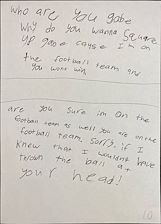 who are you gabe
Why do you wanna square
up gabe cause I'm on
the football team and
you wont win
are you sure im on the
football team as well you are on the
football team. Sorry if I
knew that I wouldnt have
thrown the ball at
your head!